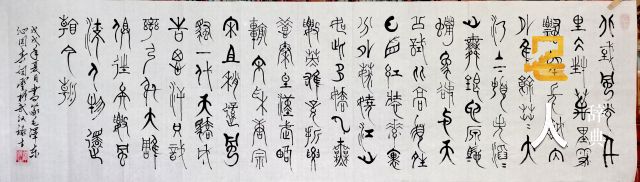 北國風光千
里冰封萬里雪
飄望長城內
外惟餘莽莽大
河上下頓失滔滔
山舞銀蛇原馳
蠟象欲與天
公試比高須晴
日看紅裝素裹
分外妖嬈江
山如此多嬌引無
數英雄競折腰
惜秦皇漢武略
輸文采唐宗
宋祖稍遜風
騷一代天驕成
吉思汗只識
彎弓射大雕
俱往矣數風
流人物還
看今朝
戊戌年夏日書錄毛澤東
沁園春雪詞於武漢
名人
辞典